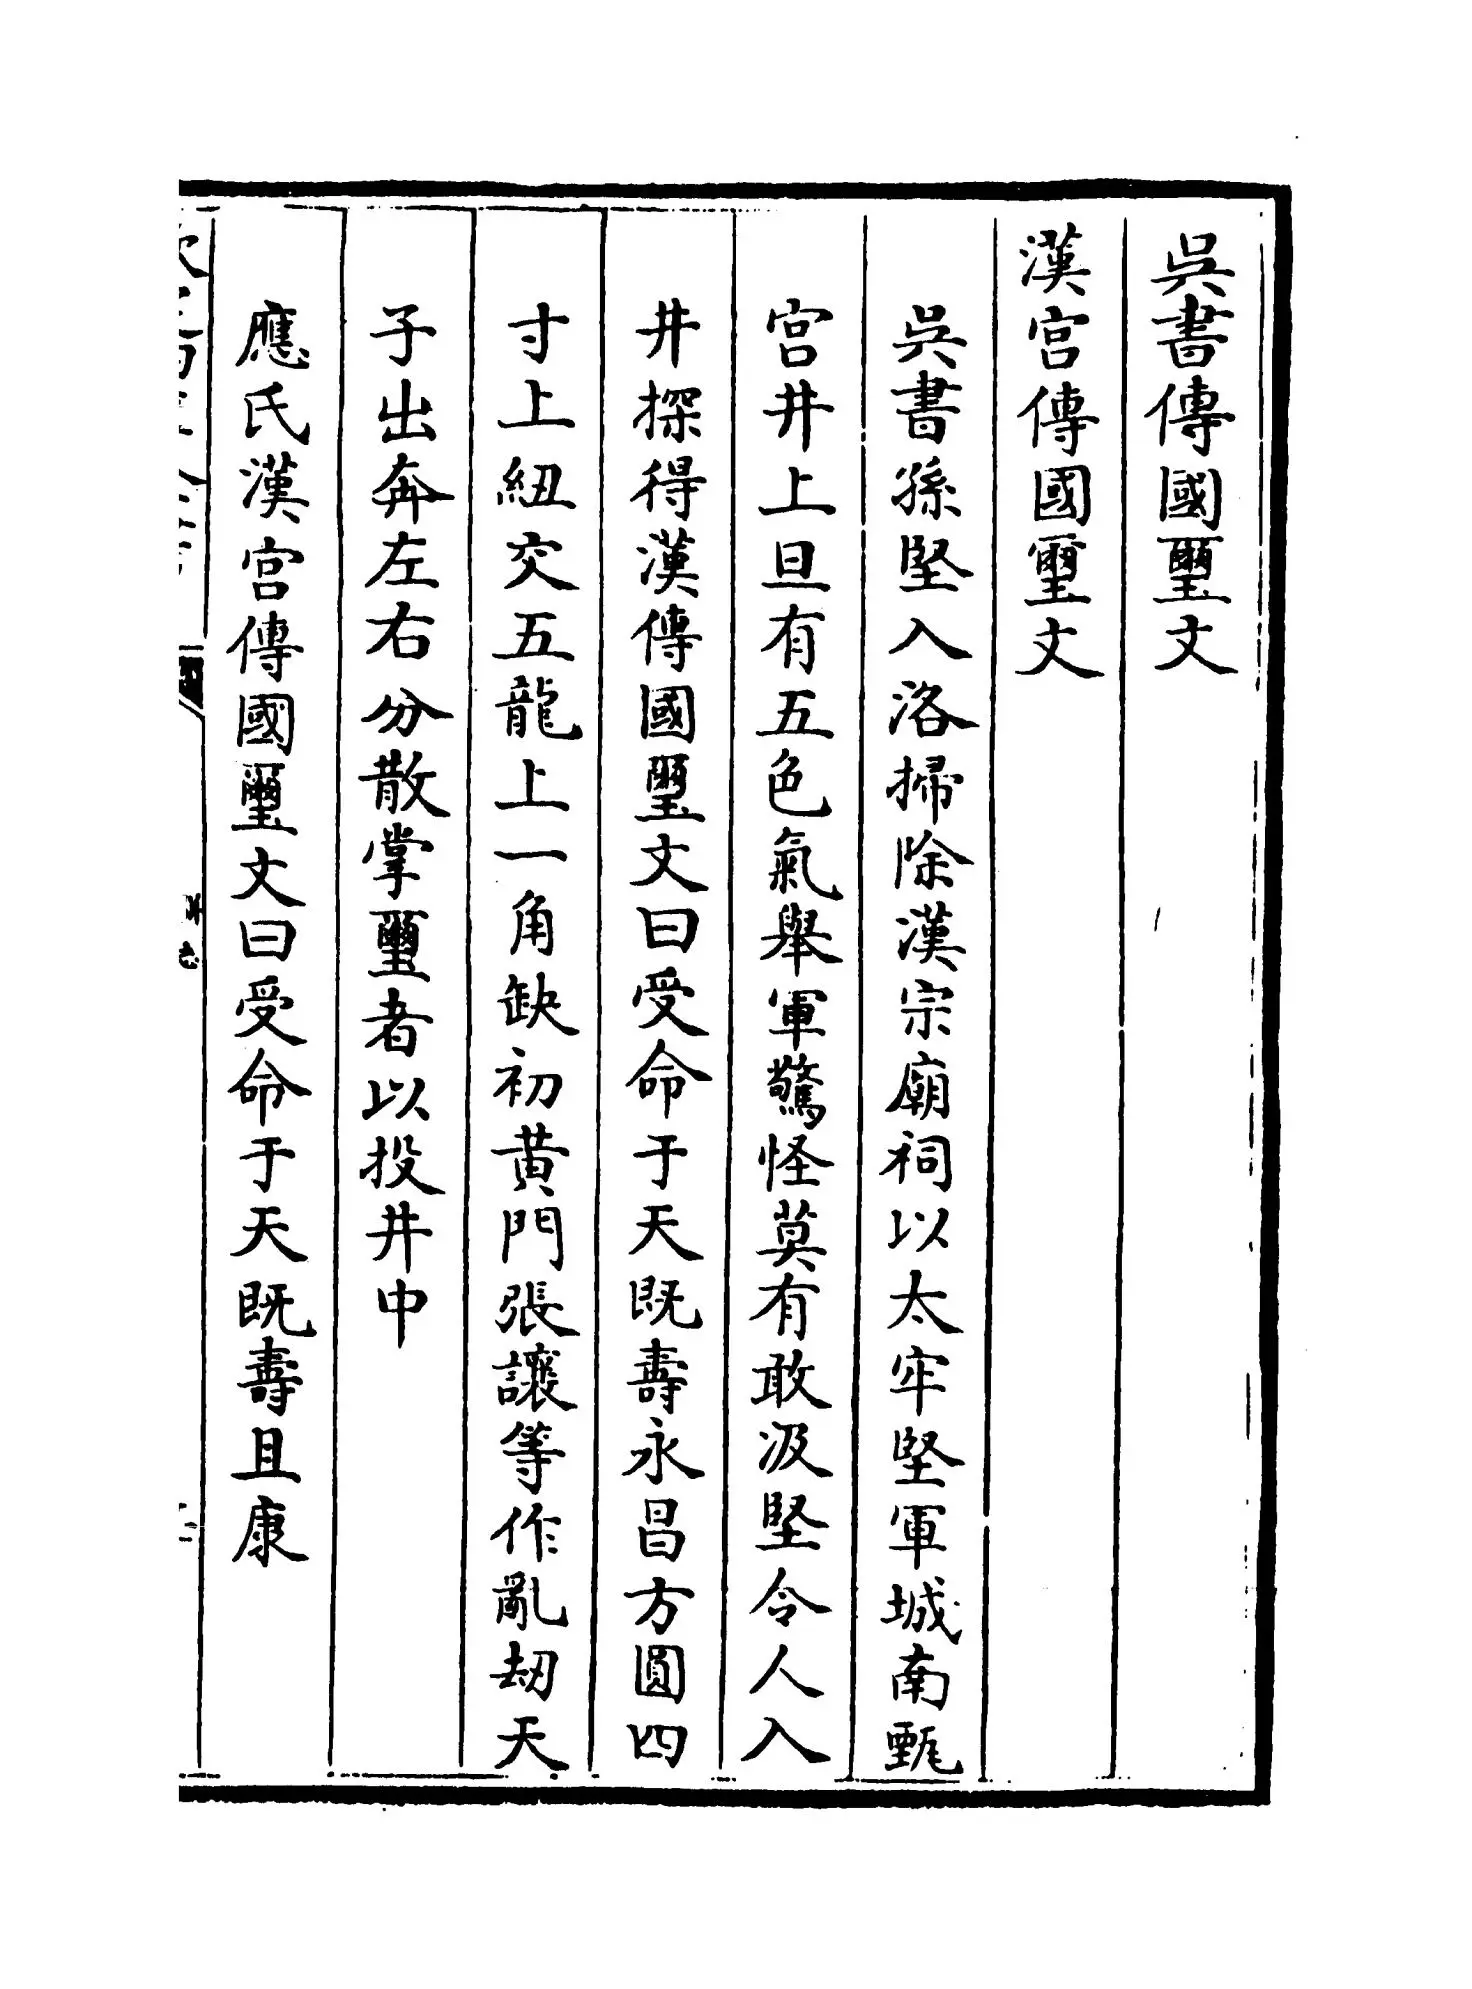 吳書傳國璽文
漢宫傳國璽文
吳書孫堅入洛掃除漢宗廟祠以太牢堅軍城南甄
宫井上旦有五色氣舉軍驚怪莫有敢汲堅令人入
井探得漢傳國璽文曰受命于天既壽永昌方圓四
寸上紐交五龍上一角缺初黄門張讓等作亂劫天
子出奔左右分散掌璽者以投井中
應氏漢宫傳國璽文曰受命于天既壽且康